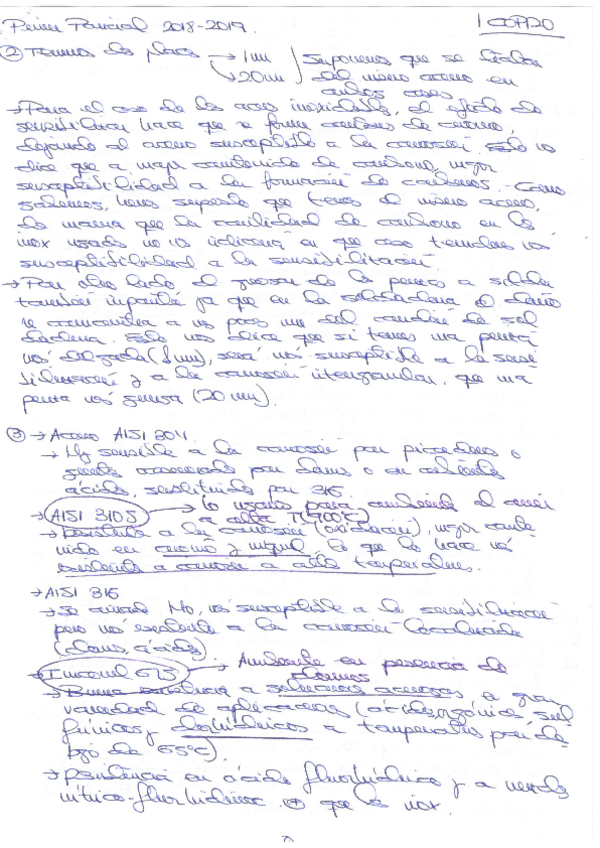 Primer Parcial 2018-2019
② Tenemos dos placas → 1 mm
↳ 20 mm
Suponemos que se trata
del mismo acero en
ambos casos.
→ Para el caso de los aceros inoxidables, el efecto de
sensibilizar hace que se formen carburos de cromo,
dejando el acero susceptible a la corrosión. Esto nos
dice que a mayor contenido de carbono, mayor
susceptibilidad a la formación de carburos. Como
sabemos, hemos supuesto que tenemos el mismo acero,
de manera que la cantidad de carbono en los
inox usados no nos indicará en que caso tendremos más
susceptibilidad a la sensibilización.
→ Por otro lado, el grosor de la a soldar
también ya que en la soldadura el
se a unos pocos mm del cordón de sol
dadura. Esto nos dice que si tenemos una
más delgada (1 mm), será más susceptible a la sensi
bilización y a la corrosión intergranular, que una
más gruesa (20 mm).
③ → Acero AISI 304
→ Muy sensible a la corrosión por picaduras o
por cloruros o en
ácido, sustituido por 316.
→ AISI 310S → Lo usamos para
a alta Tª (900ºC)
→ Resistente a la corrosión (oxidación), mayor conte-
nido en cromo y níquel, lo que lo hace más
resistente a corrosión a altas temperaturas.
→ AISI 316
→ Se añade Mo, más susceptible a la sensibilización
pero más resistente a la corrosión localizada
(cloruros, ácidos)
→ Inconel 625 → Ambiente en presencia de
cloruros
→ Buena resistencia a soluciones acuosas a gran
variedad de aplicaciones (ácidos orgánicos, sul
fúricos y clorhídricos a temperaturas por de-
bajo de 65ºC).
→ Resistencia en ácido fluorhídrico y a mezcla
nítrico-fluorhídrico ⊕ que los inox.